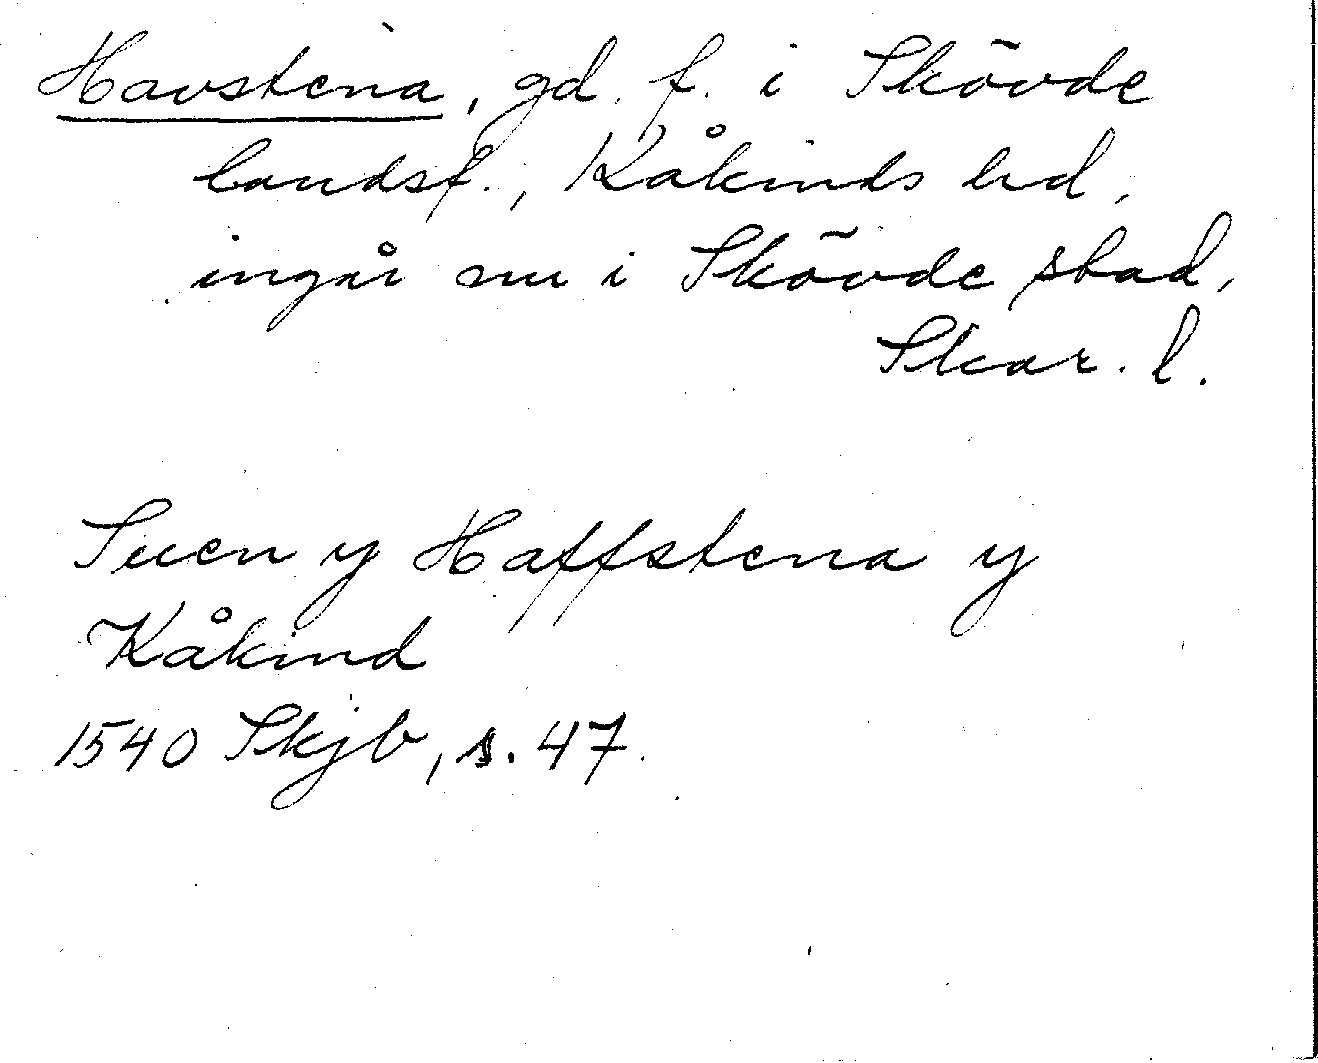 Havstena, gd. f. i Skövde
landsf., Kåkinds hd,
ingår nu i Skövde stad,
Skar. l.
Suen y Haffstena y
Kåkind
1540 Skjb, s. 47.